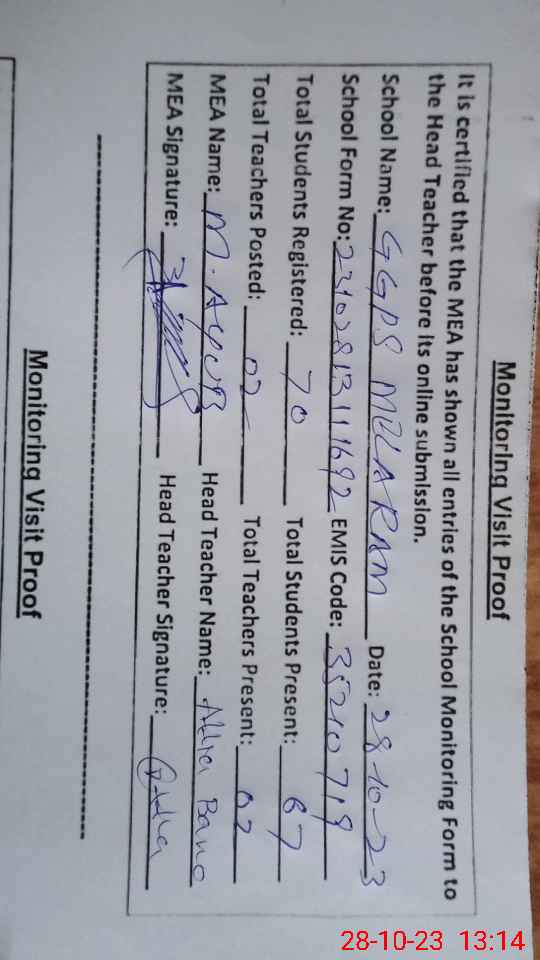 Monitoring Visit Proof
It is certified that the MEA has shown all entries of the School Monitoring Form to
the Head Teacher before its online submission.
School Name: GGPS MELA RAM Date: 28-10-23
School Form No: 23102813111692 EMIS Code: 35210719
Total Students Registered: 70 Total Students Present: 67
Total Teachers Posted: 02 Total Teachers Present: 02
MEA Name: M. AYUB Head Teacher Name: Bano
MEA Signature: Head Teacher Signature:
Monitoring Visit Proof
28-10-23 13:14